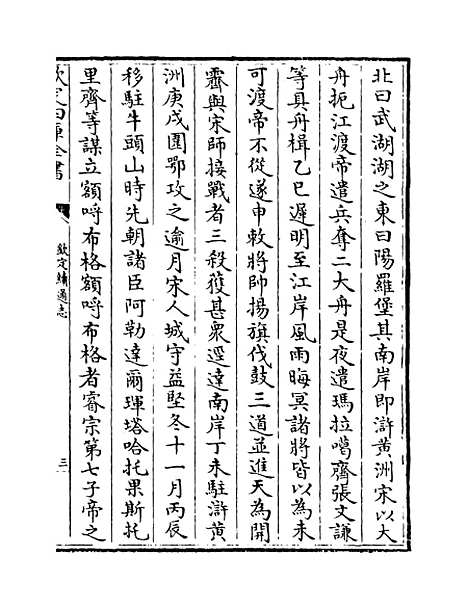 北曰武湖湖之東曰陽羅堡其南岸即滸黃洲宋以大
舟扼江渡帝遣兵奪二大舟是夜遣瑪拉噶齊張文謙
等具舟楫乙巳遲明至江岸風雨晦冥諸將皆以為未
可渡帝不從遂申敕將帥揚旗伐鼓三道並進天為開
霽與宋師接戰者三殺獲甚眾逕達南岸丁未駐滸黃
洲庚戌圍鄂攻之逾月宋人城守益堅冬十一月丙辰
移駐牛頭山時先朝諸臣阿勒達爾琿塔哈托果斯托
里齊等謀立額哷布格額哷布格者睿宗第七子帝之
欽定四庫全書
欽定續通志
三